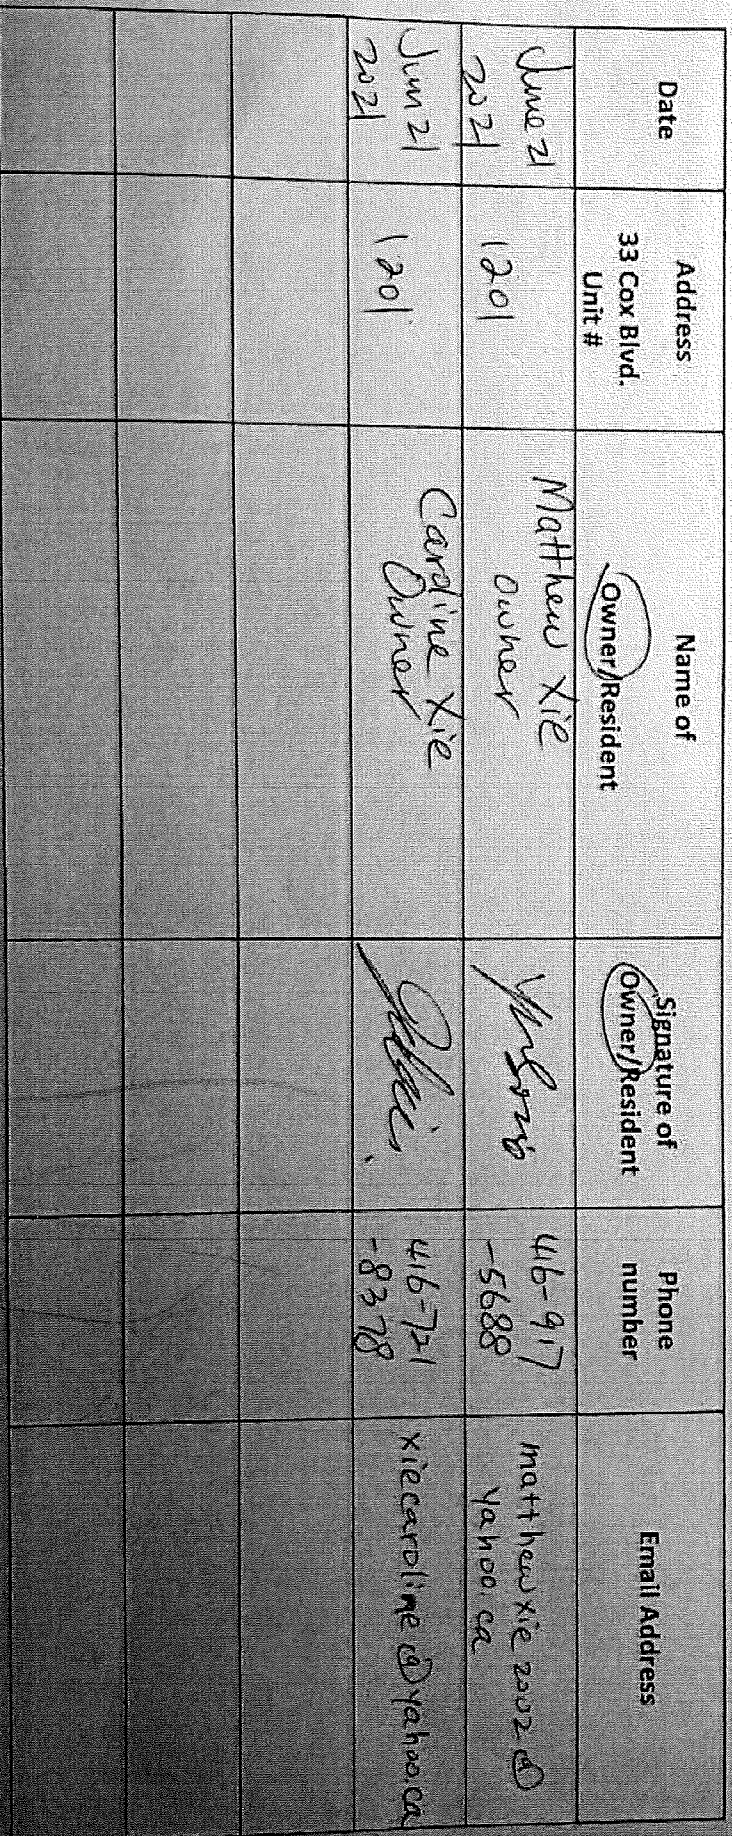 Date
Address
33 Cox Blvd.
Unit #
Name of
Owner/Resident
Signature of
Owner/Resident
Phone
number
Email Address
June 21
2021
1201
Matthew Xie
Owner
416-917
-5688
matthewxie2002@
yahoo.ca
Jun 21
2021
1201
Caroline Xie
Owner
416-721
-8378
xiecaroline@yahoo.ca